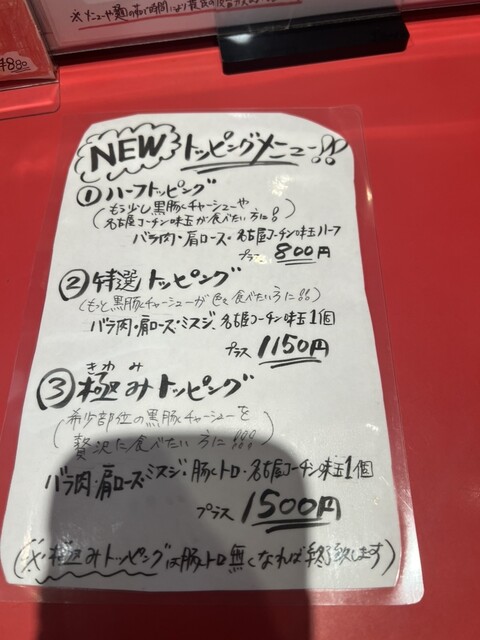 ※メニューや麺の
¥880
NEW トッピングメニュー!!
①ハーフトッピング
(もう少し黒豚チャーシューや
名古屋コーチン味玉が食べたい方に!)
バラ肉・肩ロース・名古屋コーチン味玉ハーフ
プラス 800円
②特選トッピング
(もっと黒豚チャーシューが色々食べたい方に!!)
バラ肉・肩ロース・ミスジ・名古屋コーチン味玉1個
プラス 1150円
きわみ
③極みトッピング
(希少部位の黒豚チャーシューを
贅沢に食べたい方に!!!)
バラ肉・肩ロース・ミスジ・豚トロ・名古屋コーチン味玉1個
プラス 1500円
(※極みトッピングは豚トロ無くなれば終了致します)